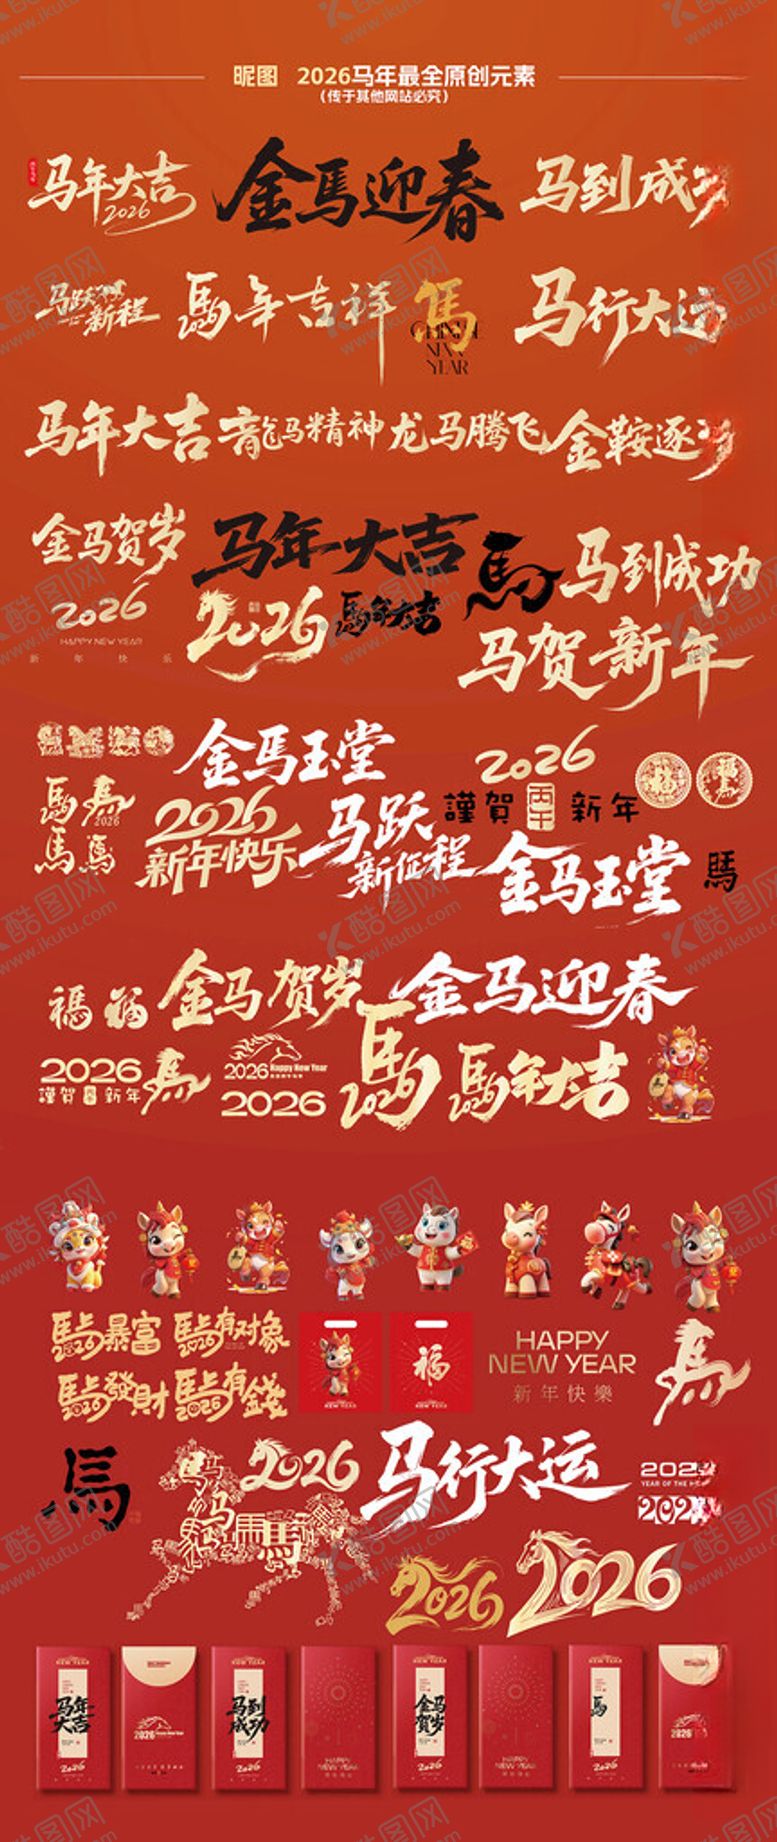 昵图 2026马年最全原创元素
(传于其他网站必究)
马年大吉
2026
金馬迎春
马到成
马跃
新程
馬年吉祥
馬
CHINESE
NEW
YEAR
马行大运
马年大吉
龍马精神
龙马腾飞
金鞍逐
金马贺岁
2026
HAPPY NEW YEAR
新年快乐
马年大吉
2026
馬年大吉
馬
马到成功
马贺新年
金馬玉堂
2026
謹賀 丙午 新年
福
福
馬
馬
2026
馬
馬
2026
新年快乐
马跃
新征程
金马玉堂
馬
福 福
金马贺岁
金马迎春
2026
謹賀 新年
馬
2026 Happy New Year
2026
馬
2026
馬年大吉
2026
馬上暴富
2026
馬上有对象
2026
馬上發財
2026
馬上有錢
2026
福
HAPPY
NEW YEAR
新年快樂
馬
馬
2026
马行大运
202
YEAR OF THE
202
2026
2026
NEW YEAR
马年
大吉
2026
2026 Happy New Year
NEW YEAR
马到
成功
2026
HAPPY
NEW YEAR
NEW YEAR
金马
贺岁
2026
HAPPY
NEW YEAR
NEW YEAR
馬
2026
2026
酷图网
www.ikutu.com